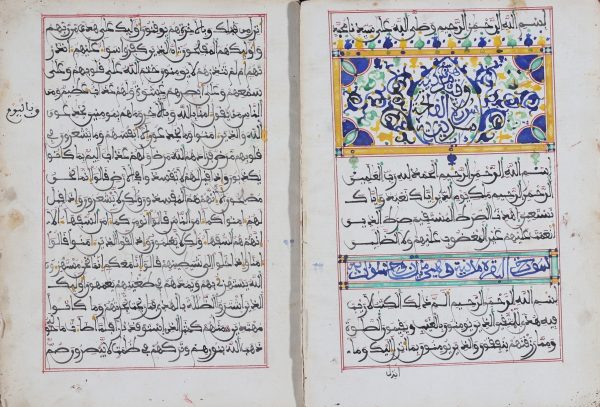 بسم الله الرحمن الرحيم وصلى الله على سيدنا
بسم الله الرحمن الرحيم الحمد لله رب العلمين
الرحمن الرحيم ملك يوم الدين اياك نعبد واياك
نستعين اهدنا الصرط المستقيم صرط الذين
انعمت عليهم غير المغضوب عليهم ولا الضالين
سورة البقرة مدنية وهي
بسم الله الرحمن الرحيم الم ذلك الكتب لا ريب
فيه هدى للمتقين الذين يومنون بالغيب ويقيمون الصلوة
ومما رزقنهم ينفقون والذين يومنون بما انزل اليك وما
انزل
انزل من قبلك وبالاخرة هم يوقنون اوليك على هدى من ربهم
واوليك هم المفلحون ان الذين كفروا سواء عليهم ءانذر
تهم ام لم تنذرهم لا يومنون ختم الله على قلوبهم وعلى
سمعهم وعلى ابصرهم غشوة ولهم عذاب عظيم ومن
الناس من يقول امنا بالله وبالاخر وما هم بمومنين يخدعون
وباليوم
الله والذين امنوا وما يخدعون الا انفسهم وما يشعرون في
قلوبهم مرض فزادهم الله مرضا ولهم عذاب اليم بما كانوا
يكذبون واذا قيل لهم لا تفسدوا في الارض قالوا انما نحن
مصلحون الا انهم هم المفسدون ولكن لا يشعرون واذا قيل
لهم ءامنوا كما ءامن الناس قالوا انومن كما ءامن السفهاء الا
انهم هم السفهاء ولكن لا يعلمون واذا لقوا الذين ءامنوا قالوا ءا
منا واذا خلوا الى شيطينهم قالوا انا معكم انما نحن مستهزءون
الله يستهزئ بهم ويمدهم في طغينهم يعمهون اوليك
الذين اشتروا الضللة بالهدى فما ربحت تجرتهم وما كانوا
مهتدين مثلهم كمثل الذي استوقد نارا فلما اضاءت ما حوله
ذهب الله بنورهم وتركهم في ظلمت لا يبصرون صم